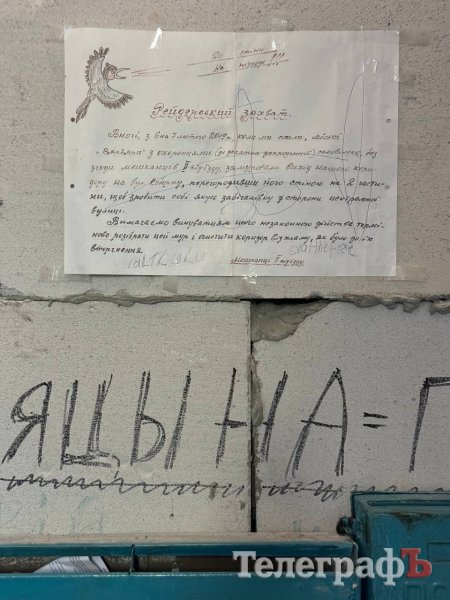 До стіни
не підходь!!!
Рейдерський захват.
Вночі, з 6 на 7 лютого 2019р, коли ми спали, місцеві
з охоронцями самовільно, без
згоди мешканців ІІ підїзду, замурували вихід нашого кори-
дору на вул. Соборну, перегородивши його стіною на 2 части-
ни, щоб зробити собі якусь забігайлівку з сторони центральної
вулиці.
Вимагаємо винуватцям цього незаконного дійства термі-
ново розібрати цей мур і очистити коридор від хламу, як було до їх
вторгнення.
Мешканці ІІ підїзду.
ЯЦЫНА=Г
ТелеграфЪ